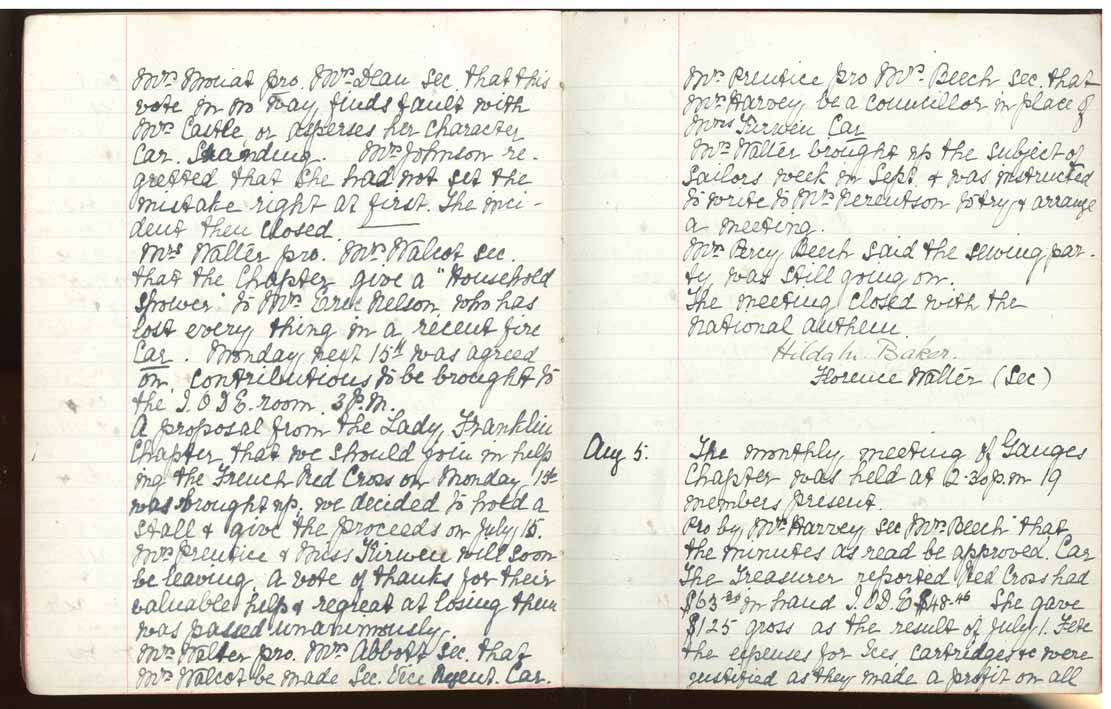 Mrs Mouat pro. Mrs Dean sec. that this
vote in no way finds fault with
Mrs Castle or asperses her character
Car. Standing. Mrs Johnson re-
gretted that she had not set the
mistake right at first. The inci-
dent then closed.
Mrs Walter pro. Mrs Walcot sec.
that the Chapter give a "Household
Shower" to Mrs Eric Nelson who has
lost every thing in a recent fire
Car. Monday next 15th was agreed
on, contributions to be brought to
the I.O.D.E. room. 3 P.M.
A proposal from the Lady Franklin
Chapter, that we should join in help
ing the French Red Cross on Monday 15th
was brought up. we decided to hold a
stall & give the proceeds on July 15.
Mrs Prentice & Miss Kirwin will soon
be leaving a vote of thanks for their
valuable help & regreat at losing them
was passed unanimously.
Mrs Walter pro. Mrs Abbott sec. that
Mrs Walcot be made Sec. Vice Regent. Car.
Mrs Prentice pro Mrs. Beech sec. that
Mrs Harvey be a Councillor in place of
Miss Kirwin Car
Mrs Walter brought up the subject of
Sailors week in Sept. & was instructed
to write to Mrs to try & arrange
a meeting.
Mrs Percy Beech said the sewing par-
ty was still going on.
The meeting closed with the
National anthem
Hilda M. Baker.
Florence Walter (Sec)
Aug 5. The monthly meeting of Ganges
Chapter was held at 2.30 p.m 19
members present.
Pro by Mrs Harvey sec Mrs Beech that
the minutes as read be approved. Car
The Treasurer reported Red Cross had
$63 in hand I.O.D.E $48.46 She gave
$125 gross as the result of July 1. Fete
the expenses for Ices Cartridges &c were
justified as they made a profit on all